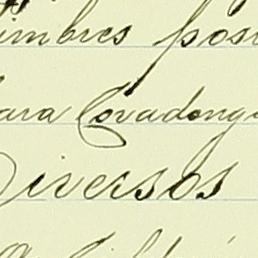 imbres pos
ara Covadong
Diversos